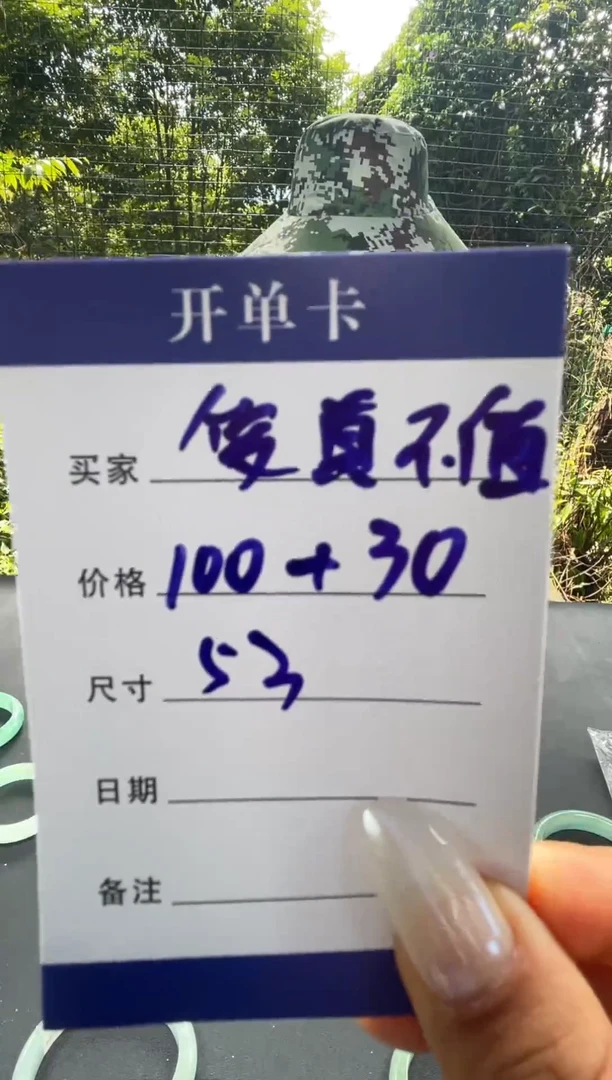 开单卡
买家 傻真不值
价格 100+30
尺寸 53
日期
备注